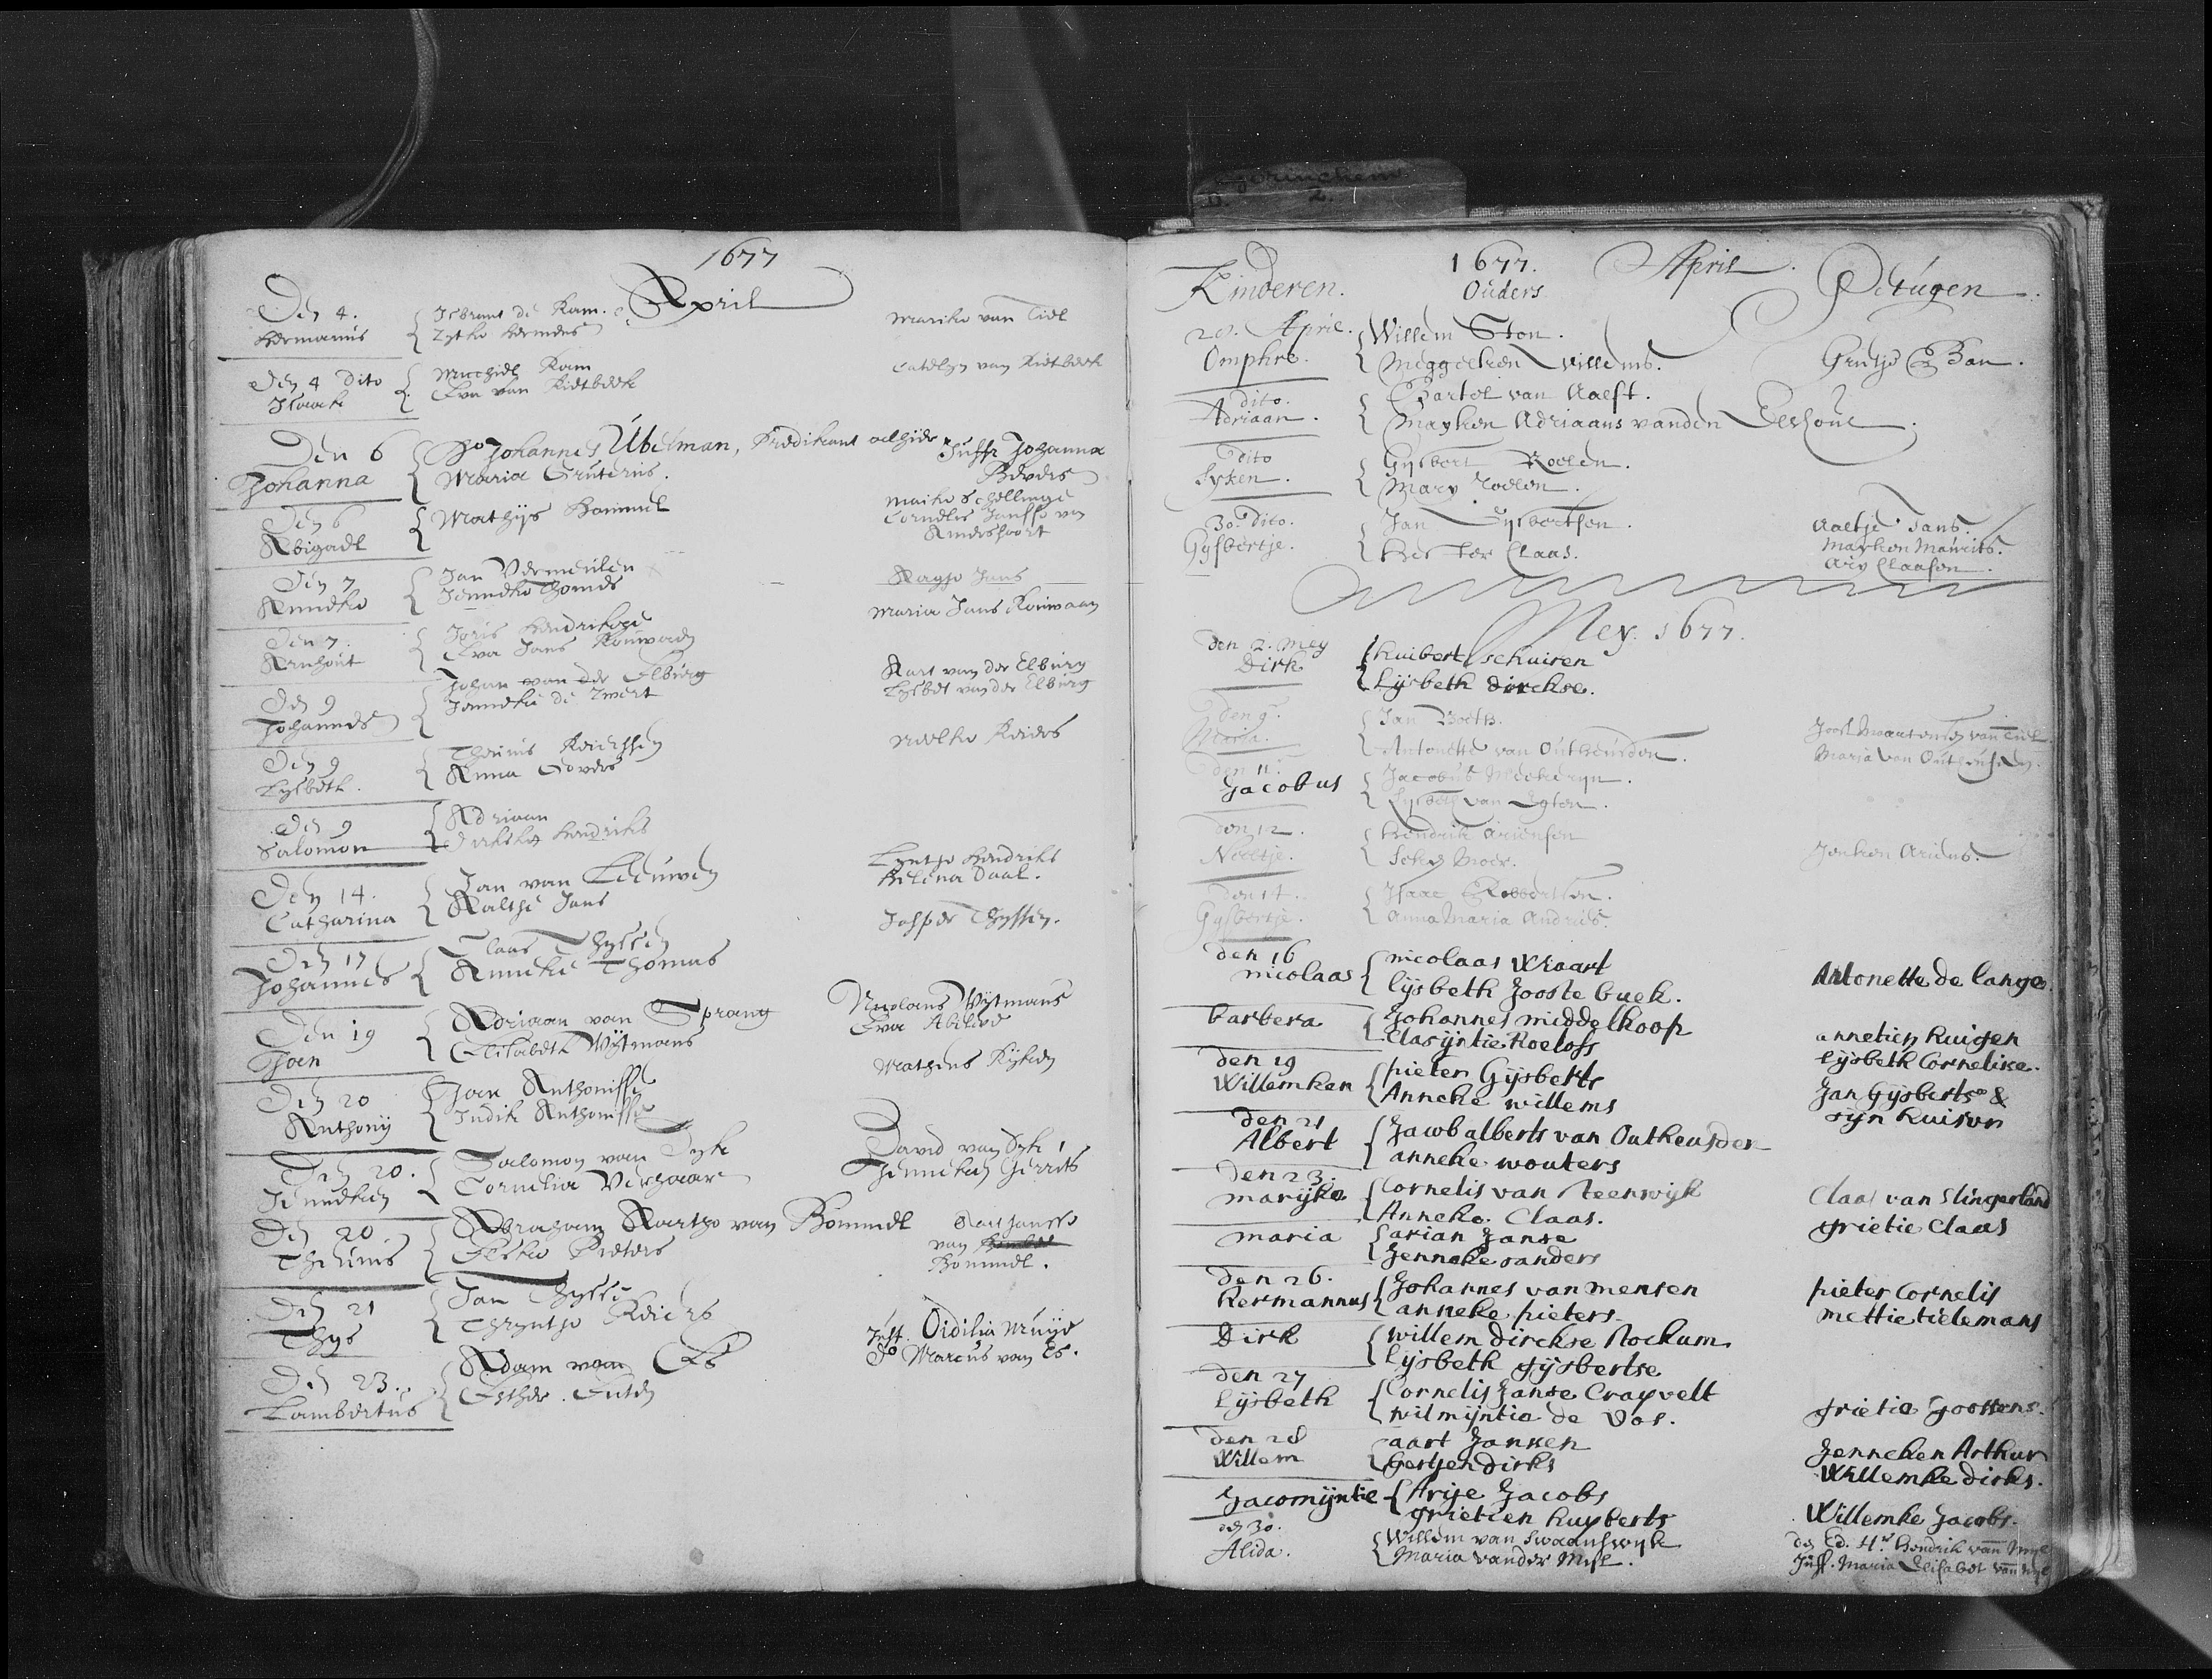 Gorinchem
2.
1677
April
Den 4.
Hermanus
Isbrant de Ram.
Marike van Tiel
Den 4 dito
Isaack
Machiel Ram
Eva van Rietbeek
Catelyn van Rietbeek
Den 6
Johanna
Do Johannes Ubelman, Predikant alhier
Maria Gruterus.
Juffr Johanna
Bevers
Den 6
Abigael
Mathijs Bommel
Maike Schellinge
Cornelis Jansse van
Amersfoort
Den 7
Anneke
Jan Vermeulen
Janneke Thomes
Aagje Jans
Den 7.
Arnhout
Joris Hendrikse
Eva Jans Kouwaen
Maria Jans Kouwaan
Den 9
Johannes
Johan van der Elburg
Janneke de Zwert
Aart van der Elburg
Lysbet van der Elburg
Den 9
Lysbeth.
Theunis
Anna Govers
Neelke
Den 9
Salomon
Adriaan
Hendriks
Den 14.
Catharina
Jan van Leeuwen
Aaltje Jans
Lyntje Hendriks
Helena Daal.
Den 17
Johannes
Claas Thyssen
Anneke Thomas
Jasper Thyssen.
Den 19
Jan
Adriaan van Sprang
Elisabeth Wytmans
Nicolaus Wytmans
Eva
Den 20
Anthony
Jan Anthonisse
Judik Anthonisse
Matheus Ryken
Den 20.
Jenneken
Salomon van Dyk
Cornelia Verhaar
David van Dyk
Jenneken Gerrits
Den 20
Theunis
Abraham Aartse van Bommel
Elske Pieters
Aart Jansse
van
Bommel.
Den 21
Thys
Jan Thysse
Thryntje
Den 23.
Lambertus
Adam van Es
Esther.
Juff. Oidilia Muijs
Do Marcus van Es.
1677. April.
Kinderen. Ouders Getúgen.
28. April.
Omphre.
Willem Ston.
Meggeken Willems.
Grietje Ban.
dito.
Adriaan.
Bartel van Aalst.
Mayken Adriaans vanden Eeshout.
dito
Syken.
Gysbert Roelen.
Mary Roelen.
30. dito.
Gysbertje.
Jan Gysbertsen.
Hester Claas.
Aaltje Jans.
Mayken Maurits.
Ary Claasen.
Mey. 1677.
Den 2. mey
Dirk
huibert schuiren
Lijsbeth dirckse.
den 9.
Maria.
Jan Booth.
Antonette van Outheusden.
Joost Maartensen van Tiel.
Maria van Outheusden.
den 11.
Jacobus
Jacobus Meckeryn.
Lysbeth van Egten.
den 12.
Neeltje.
Hendrik Ariensen
Jenken Ariens.
den 14.
Gysbertje.
Isaac Robbertsen.
Anna Maria Andries.
den 16
nicolaas
nicolaas Whaart
lijsbeth Jooste buek.
Antonette de lange.
barbera
Johannes middelkoop
Clasijntie Roelofs
annetien huigen
lijsbeth Cornelisse.
den 19
Willemken
pieter Gijsberts
Anneke willems
Jan Gijsbertse &
sijn huisvr
den 21
Albert
Jacob alberts van Outheusden
anneke wouters
den 23.
marijke
Cornelis van Steenwijk
Anneke Claas.
Claas van Slingerland
grietie Claas
maria
arian Janse
Jenneke sanders
den 26.
hermannus
Johannes van mensen
anneke pieters
pieter Cornelis
mettie tielemans
Dirk
willem dirckse Nockum
Lijsbeth gijsbertse
den 27
Lijsbeth
Cornelis Janse Crayvelt
wilmijntie de Vos.
grietie Joostens.
den 28
Willem
aart Jansen
Gertjen dirks
Jenneken Arthur
Willemke dirks.
Jacomijntie
Arije Jacobs
grietien huyberts
Willemke Jacobs.
den 30.
Alida.
Willem van Swaanswyk
Maria vander Myl.
de Ed. Hr. Hendrik van Myl
Juff. Maria Elisabet van Myl